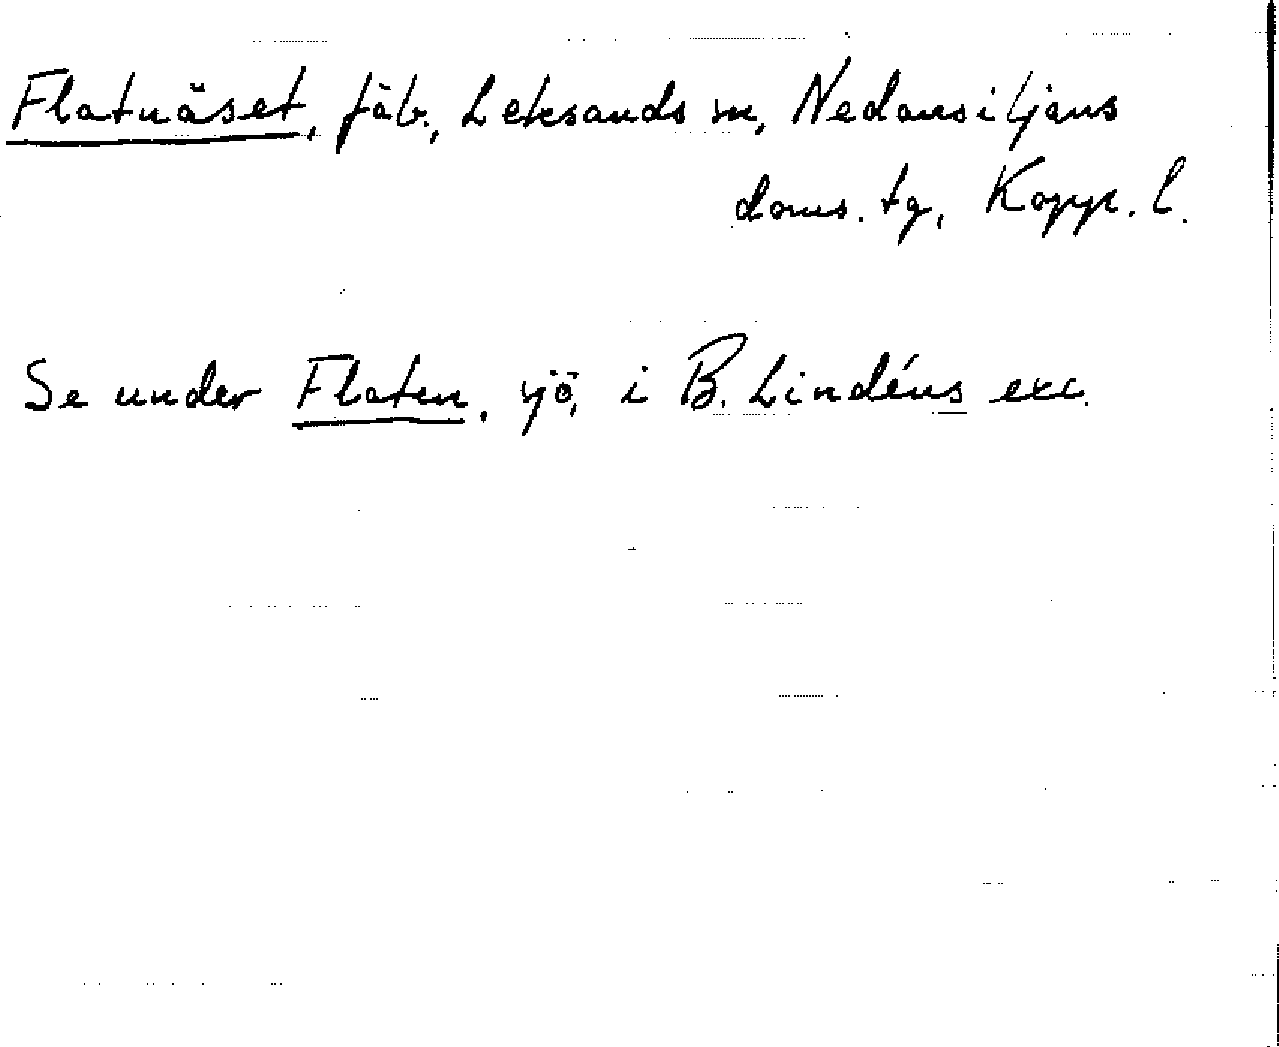 Flatnäset, fäb., Leksands sn, Nedansiljans
doms. tg, Kopp. l.
Se under Flaten, sjö, i B. Lindéns exc.